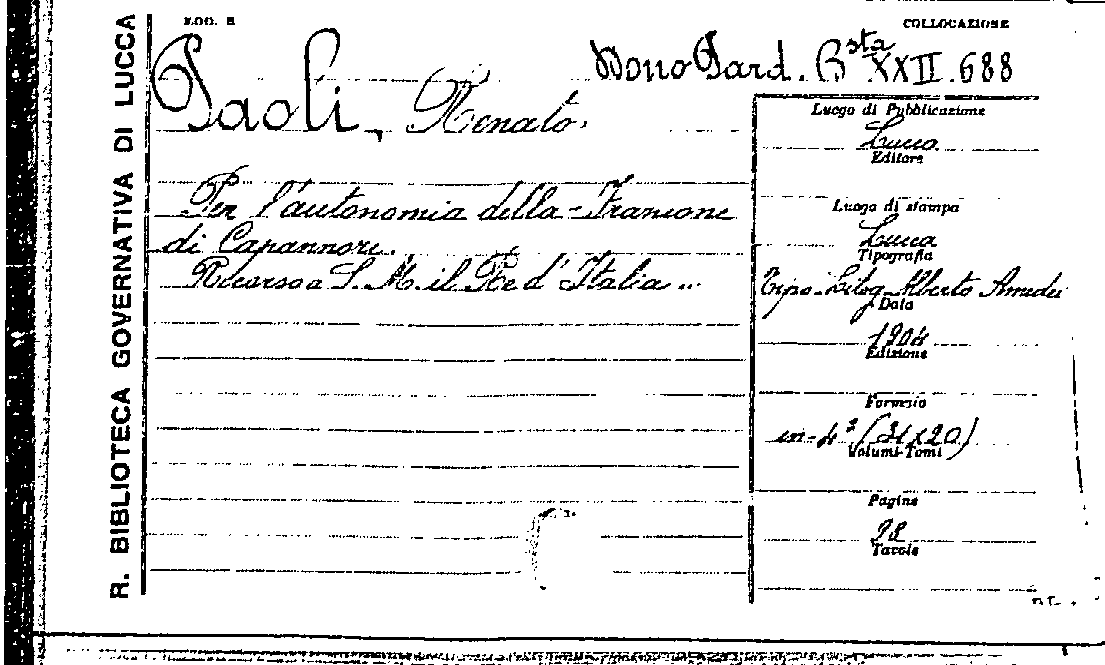 R. BIBLIOTECA GOVERNATIVA DI LUCCA
MOD. B
COLLOCAZIONE
Dono Pard. Bsta XXII.688
Paoli, Renato.
Per l'autonomia della Frazione
di Capannori.
Ricorso a S. M. il Re d'Italia ...
Luogo di Pubblicazione
Lucca
Editore
Luogo di stampa
Lucca
Tipografia
Tipo-Litog. Alberto Amedei
Data
1904
Edizione
Formato
in-4° (31x20)
Volumi-Tomi
Pagine
28
Tavole